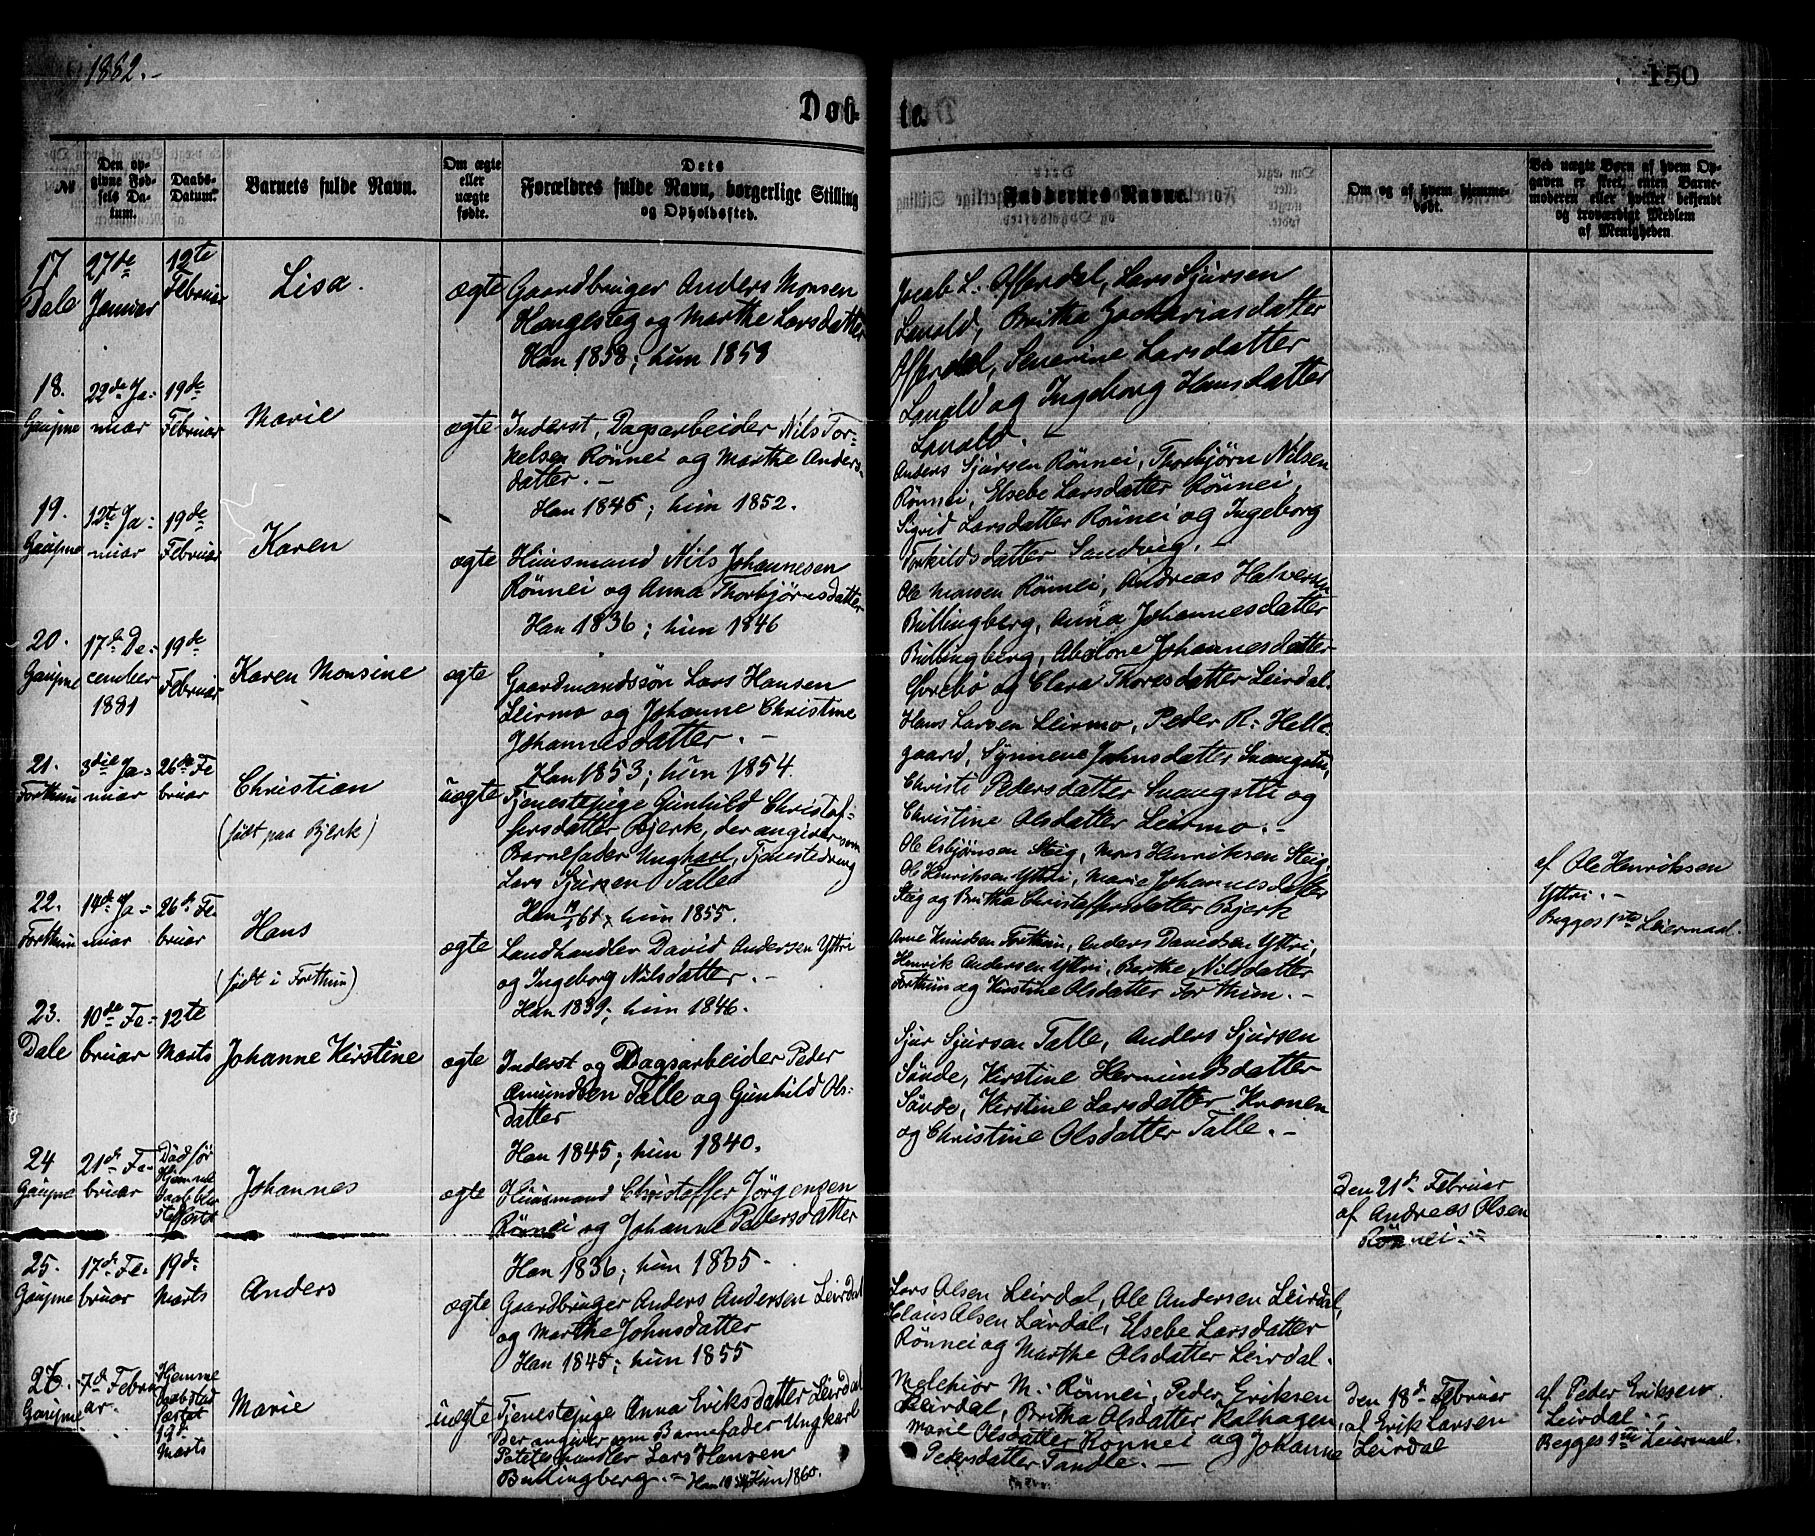 1882.-
150
Døbte.
№
Den opgivne Fødsels Datum.
Daabs-Datum.
Barnets fulde Navn.
Om ægte eller uægte fødte.
Dets Forældres fulde Navn, borgerlige Stilling og Opholdssted.
Faddernes Navne.
Om og af hvem hjemmedøbt.
Ved uægte Børn af hvem Opgaven er skeet, enten Barnemoderen eller hvilket bekjendt og troværdigt Medlem af Menigheden
17
Dale
27de
Januar
12te
Februar
Lisa.
ægte
Gaardbruger Anders Monsen
Haugesteg og Marthe Larsdatter
Han 1858; hun 1859
Jacob L. Afferdal, Lars Sjursen
Lavold, Britha Zachariasdatter
Afferdal, Severine Larsdatter
Lavold og Ingeborg Hansdatter
Lavold.
18.
Gaupne
22de Ja-
nuar
19de
Februar
Marie
ægte
Inderst, Dagsarbeider Nils Tor-
kelsen Rönnei og Marthe Anders-
datter. -
Han 1845; hun 1852.
Anders Sjursen Rönnei, Thorbjørn Nilsen
Rønnei, Elsebe Larsdatter Rönnei,
Sigrid Larsdatter Rönnei og Ingeborg
Torkildsdatter Sandvig. -
19.
Gaupne
12te Ja-
nuar
19de
Februar
Karen
ægte
Huusmand Nils Johannesen
Rönnei og Anna Thorbjörnsdatter
Han 1836; hun 1846
Ole Monsen Rönnei, Andreas Halversen
Bullingberg, Anna Johannesdatter
Bullingberg, Abelone Johannesdatter
og Clara Thoresdatter Leirdal.
20.
Gaupne
17de De-
cember
1881
19de
Februar
Karen Monsine
ægte
Gaardmandssøn Lars Hansen
Leirmo og Johanne Christine
Johannesdatter. -
Han 1853; hun 1854.
Hans Larsen Leirmo, Peder R. Helle-
gaard, Synneve Johnsdatter
Christi Pedersdatter og
Christine Olsdatter Leirmo. -
21.
Forthun
3die Ja-
nuar
26de Fe
bruar
Christian
(født paa Bjerk)
uægte
Tjenestepige Gunhild Christof-
fersdatter Bjerk, der angiver som
Barnefader Ungkarl, Tjenestedreng
Lars Sjursen Talle
hun 1855.
Ole Esbjønsen Steig, Mons Henriksen Steig,
Ole Henriksen Yttri, Marie Johannesdatter
Steig og Britha Christoffersdatter Bjerk
af Ole Henriksen
Yttri. -
Begges 1ste Leiermaal.
22.
Forthun
14de Ja-
nuar
26de Fe
bruar
Hans
(født i Forthun)
ægte
Landhandler David Andersen Yttri
og Ingeborg Nilsdatter. -
Han 1839; hun 1846.
Arne Knudsen Forthun, Anders Davidsen Yttri,
Henrik Andersen Yttri, Berthe Nilsdatter
Forthun og Kirstine Olsdatter Forthun. -
23.
Dale
10de Fe-
bruar
12te
Marts
Johanne Kirstine
ægte
Inderst og Dagsarbeider Peder
Amundsen Talle og Gunhild Ols-
datter
Han 1845; hun 1840.
Sjur Sjursen Talle, Anders Sjursen
Søvde, Kirstine Hermundsdatter
Søvde, Kirstine Larsdatter Kronen
og Christine Olsdatter Talle. -
24
Gaupne
21de Fe-
bruar
Död før
Hjemme
daab blev
stadfæstet
Johannes
ægte
Huusmand Christoffer Jörgensen
Rönnei og Johanne Pedersdatter
Han 1836; hun 1835.
Den 21de Februar
af Andreas Olsen
Rönnei. -
25.
Gaupne
17de Fe-
bruar
19de
Marts
Anders
ægte
Gaardbruger Anders Andersen Leirdal
og Marthe Johnsdatter
Han 1845; hun 1855
Lars Olsen Leirdal, Ole Andersen Leirdal,
Claus Olsen Leirdal, Elsebe Larsdatter
Rönnei og Marthe Olsdatter Leirdal.
26.
Gaupne
7de Febru
ar.
Hjemme
daab stad
fæstet
19de
Marts
Marie
uægte
Tjenestepige Anna Eriksdatter Leirdal
Der angiver som Barnefader Ungkarl
Potetes handler Lars Hansen
Bullingberg. - Hun 1860.
Melchior M. Rönnei, Peder Eriksen
Leirdal, Britha Olsdatter Kalhagen,
Marie Olsdatter Rönnei og Johanne
Pedersdatter Tandle. -
Den 18de Februar
af Erik Larsen
Leirdal
af Peder Eriksen
Leirdal. -
Begges 1ste Leiermaal.